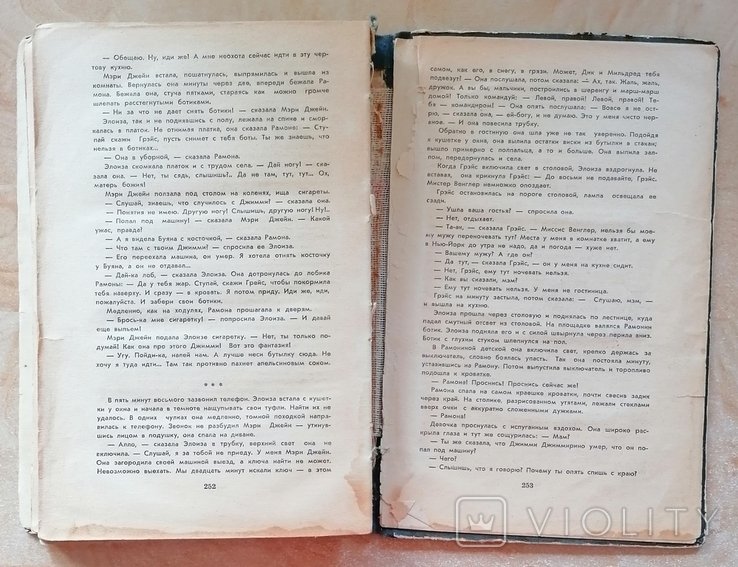 — Обещаю. Ну, иди же! А мне неохота сейчас идти в эту чер-
тову кухню.
Мэри Джейн встала, пошатнулась, выпрямилась и вышла из
комнаты. Вернулась она минуты через две, впереди бежала Ра-
мона. Бежала она, стуча пятками, стараясь как можно громче
шлепать расстегнутыми ботиками.
— Ни за что не дает снять ботики! — сказала Мэри Джейн.
Элоиза, так и не поднявшись с полу, лежала на спине и смор-
калась в платок. Не отнимая платка, она сказала Рамоне: — Сту-
пай скажи Грэйс, пусть снимет с тебя боты. Ты же знаешь, что
нельзя в ботиках...
— Она в уборной, — сказала Рамона.
Элоиза скомкала платок и с трудом села. — Дай ногу! — ска-
зала она. — Нет, ты сядь, слышишь!.. Да не там, тут, тут... Ох,
матерь божия!
Мэри Джейн ползала под столом на коленях, ища сигареты.
— Слушай, знаешь, что случилось с Джимми? — сказала она.
— Понятия не имею. Другую ногу! Слышишь, другую ногу! Ну!..
— Попал под машину! — сказала Мэри Джейн. — Какой
ужас, правда?
— А я видела Буяна с косточкой, — сказала Рамона.
— Что там с твоим Джимми? — спросила ее Элоиза.
— Его переехала машина, он умер. Я хотела отнять косточку
у Буяна, а он но отдавал...
— Дай-ка лоб, — сказала Элоиза. Она дотронулась до лобика
Рамоны: — Да у тебя жар. Ступай, скажи Грэйс, чтобы покормила
тебя наверху. И сразу — в кровать. Я потом приду. Иди же, иди,
пожалуйста. И забери свои ботики.
Медленно, как на ходулях, Рамона прошагала к дверям.
— Брось-ка мне сигаретку! — попросила Элоиза. — И давай
еще выпьем!
Мэри Джейн подала Элоизе сигаретку. — Нет, ты только по-
думай! Как она про этого Джимми! Вот это фантазия!
— Угу. Пойди-ка, налей нам. А лучше неси бутылку сюда. Не
хочу я туда идти... Там так противно пахнет апельсиновым соком.
* * *
В пять минут восьмого зазвонил телефон. Элоиза встала с кушет-
ки у окна и начала в темноте нащупывать свои туфли. Найти их не
удалось. В одних чулках она медленно, томной походкой напра-
вилась к телефону. Звонок не разбудил Мэри Джейн — уткнув-
шись лицом в подушку, она спала на диване.
— Алло, — сказала Элоиза в трубку, верхний свет она не
включила. — Слушай, я за тобой не приду. У меня Мэри Джейн.
Она загородила своей машиной выезд, а ключа найти не может.
Невозможно выехать. Мы двадцать минут искали ключ — в этом
252
самом, как его, в снегу, в грязи. Может, Дик и Милдред тебя
подвезут! — Она послушала, потом сказала: — Ах, так. Жаль, жаль,
дружок. А вы бы, мальчики, построились в шеренгу и марш-марш
домой! Только командуй: — Левой, правой! Левой, правой! Те-
бя — командиром! — Она опять послушала: — Вовсе я не ост-
рю, — сказала она, — ей-богу, и не думаю. Это у меня чисто нер-
вное. — И она повесила трубку.
Обратно в гостиную она шла уже не так уверенно. Подойдя
к кушетке у окна, она вылила остатки виски из бутылки в стакан;
вышло примерно с полпальца, а то и больше. Она выпила зал-
пом, передернулась и села.
Когда Грэйс включила свет в столовой, Элоиза вздрогнула. Не
вставая, она крикнула Грэйс: — До восьми не подавайте, Грэйс.
Мистер Венглер немножко опоздает.
Грэйс остановилась на пороге столовой, лампа освещала ее
сзади.
— Ушла ваша гостья? — спросила она.
— Нет, отдыхает.
— Та-ак, — сказала Грэйс. — Миссис Венглер, нельзя бы мое-
му мужу переночевать тут? Места у меня в комнатке хватит, а ему
в Нью-Йорк до утра не надо, да и погода — хуже нет.
— Вашему мужу? А где он?
— Да тут, — сказала Грэйс, — он у меня на кухне сидит.
— Нет, Грэйс, ему тут ночевать нельзя.
— Как вы сказали, мэм?
— Ему тут ночевать нельзя. У меня не гостиница.
Грэйс на минуту застыла, потом сказала: — Слушаю, мэм, —
и вышла на кухню.
Элоиза прошла через столовую и поднялась по лестнице, куда
падал смутный отсвет из столовой. На площадке валялся Рамонин
ботик. Элоиза подняла его и с силой швырнула через перила вниз.
Ботик с глухим стуком шлепнулся на пол.
В Рамониной детской она включила свет, крепко держась за
выключатель, словно боялась упасть. Так она постояла минутку,
уставившись на Рамону. Потом выпустила выключатель и торопливо
подошла к кроватке.
— Рамона! Проснись! Проснись сейчас же!
Рамона спала на самом краешке кроватки, почти свесив задик
через край. На столике, разрисованном утятами, лежали стеклами
вверх очки с аккуратно сложенными дужками.
— Рамона!
Девочка проснулась с испуганным вздохом. Она широко рас-
крыла глаза и тут же сощурилась: — Мам?
— Ты же сказала, что Джимми Джиммирино умер, что он по-
пал под машину?
— Чего?
— Слышишь, что я говорю? Почему ты опять спишь с краю?
253
VIOLITY